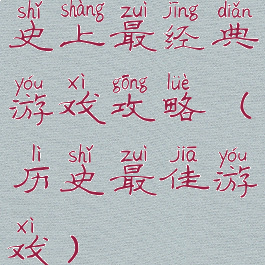 shǐ shàng zuì jīng diǎn
史上最经典
yóu xì gōng lüè
游戏攻略（
lì shǐ zuì jiā yóu
历史最佳游
xì
戏）